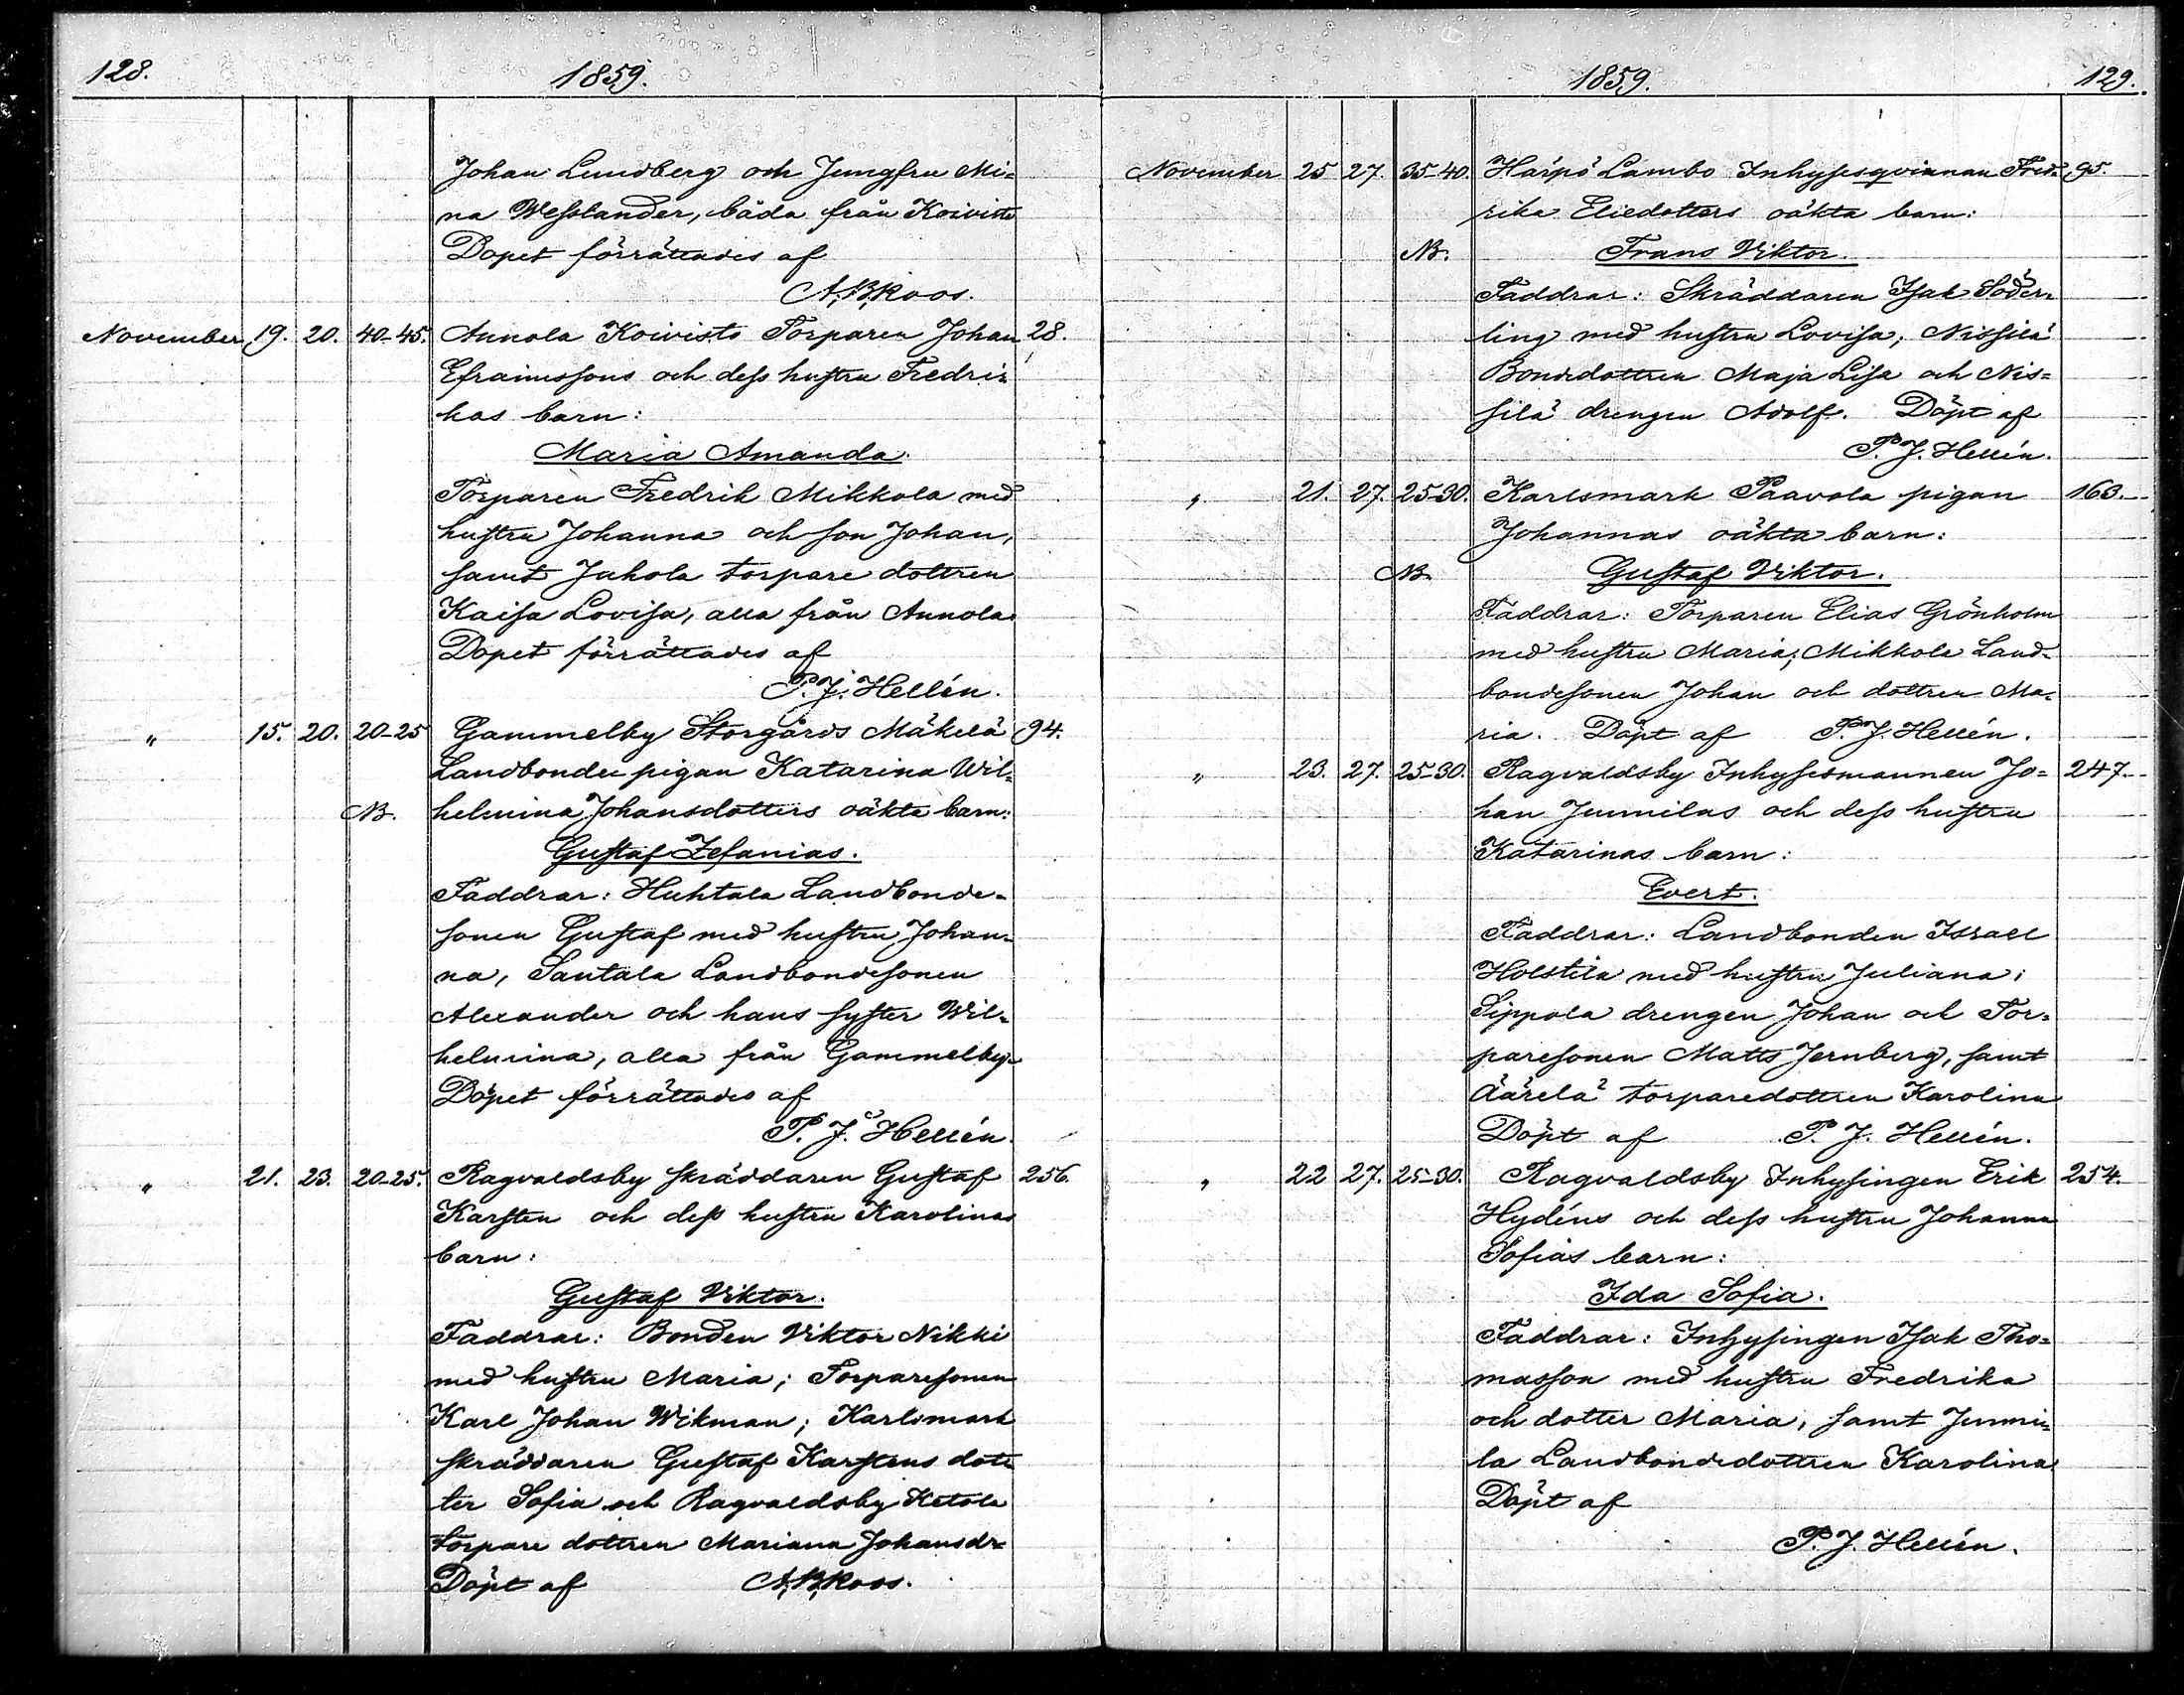 128.
1859.
Johan Lundberg och Jungfru Mi=
na Wesslander, båda från Koivisto
Dopet förrättades af
A,B,Roos.
November 19. 20. 40-45. Annola Koivisto Torparen Johan 28.
Efraimssons och dess hustru Fredri=
kas barn:
Maria Amanda.
Torparen Fredrik Mikkola med
hustru Johanna och son Johan,
samt Juhola torpare dottren
Kaisa Lovisa, alla från Annola
Dopet förrättades af
P. J. Hellén.
" 15. 20. 20-25 Gammelby Storgårds Mäkelä 94.
Landbonde pigan Katarina Wil=
NB. helmina Johansdotters oäkta barn:
Gustaf Zefanias.
Faddrar: Huhtala Landbonde=
sonen Gustaf med hustru Johan=
na, Santala Landbondesonen
Alexander och hans syster Wil=
helmina, alla från Gammelby.
Dopet förrättades af
P. J. Hellén.
" 21. 23. 20-25. Ragvaldsby skräddaren Gustaf 256.
Karsten och dess hustru Karolinas
barn:
Gustaf Viktor.
Faddrar: Bonden Viktor Nikki
med hustru Maria; Torparesonen
Karl Johan Wikman; Karlsmark
skräddaren Gustaf Karstens dot=
ter Sofia och Ragvaldsby Ketola
torpare dottren Mariana Johansdr
Döpt af A,B,Roos.
1859.
129.
November 25 27. 35-40. Härpö Lambo Inhysesqvinnan Fred= 95.
rika Eliedotters oäkta barn:
NB. Frans Viktor.
Faddrar: Skräddaren Isak Söder=
ling med hustru Lovisa; Nissilä
Bondedottren Maja Lisa och Nis=
silä drengen Adolf. Döpt af
P. J. Hellén.
" 21. 27. 25-30. Karlsmark Paavola pigan 163.
Johannas oäkta barn:
NB. Gustaf Viktor.
Faddrar: Torparen Elias Grönholm
med hustru Maria; Mikkola Land=
bondesonen Johan och dottren Ma=
ria. Döpt af P. J. Hellén.
" 23. 27. 25-30. Ragvaldsby Inhysesmannen Jo= 247.
han Jummilas och dess hustru
Katarinas barn:
Evert.
Faddrar: Landbonden Israel
Holstila med hustru Juliana;
Sippola drengen Johan och Tor=
paresonen Matts Jernberg, samt
Äärelä torparedottren Karolina
Döpt af P. J. Hellén.
" 22 27. 25-30. Ragvaldsby Inhysingen Erik 254.
Hydéns och dess hustru Johanna
Sofias barn:
Ida Sofia.
Faddrar: Inhysingen Isak Tho=
masson med hustru Fredrika
och dotter Maria, samt Jummi=
la Landbondedottren Karolina
Döpt af
P. J. Hellén.